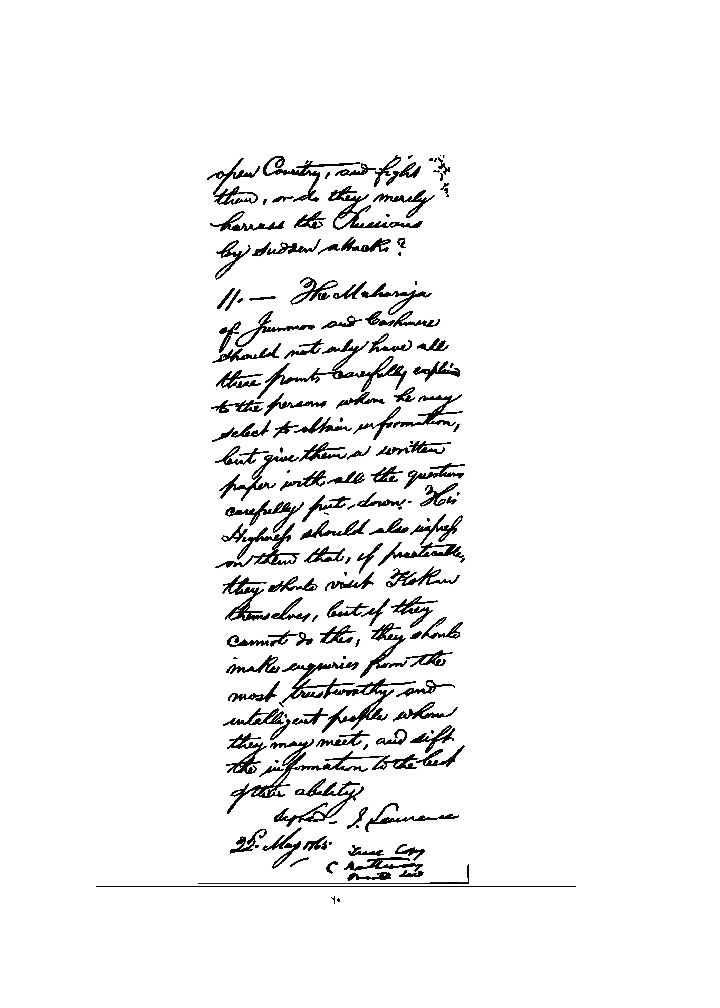 open Country, and fight
them, or do they merely
harrass the Russians
by sudden attacks?
11. — The Maharaja
of Jummoo and Cashmere
should not only have all
these points carefully explained
to the persons whom he may
select to obtain information,
but give them a written
paper with all the questions
carefully put down. His
Highness should also impress
on them that, if practicable,
they should visit Kokan
themselves, but if they
cannot do this, they should
make enquiries from the
most trustworthy and
intelligent people whom
they may meet, and sift
the information to the best
of their ability.
Signed - J. Lawrence
22d. May 1865
True Copy
۷۰